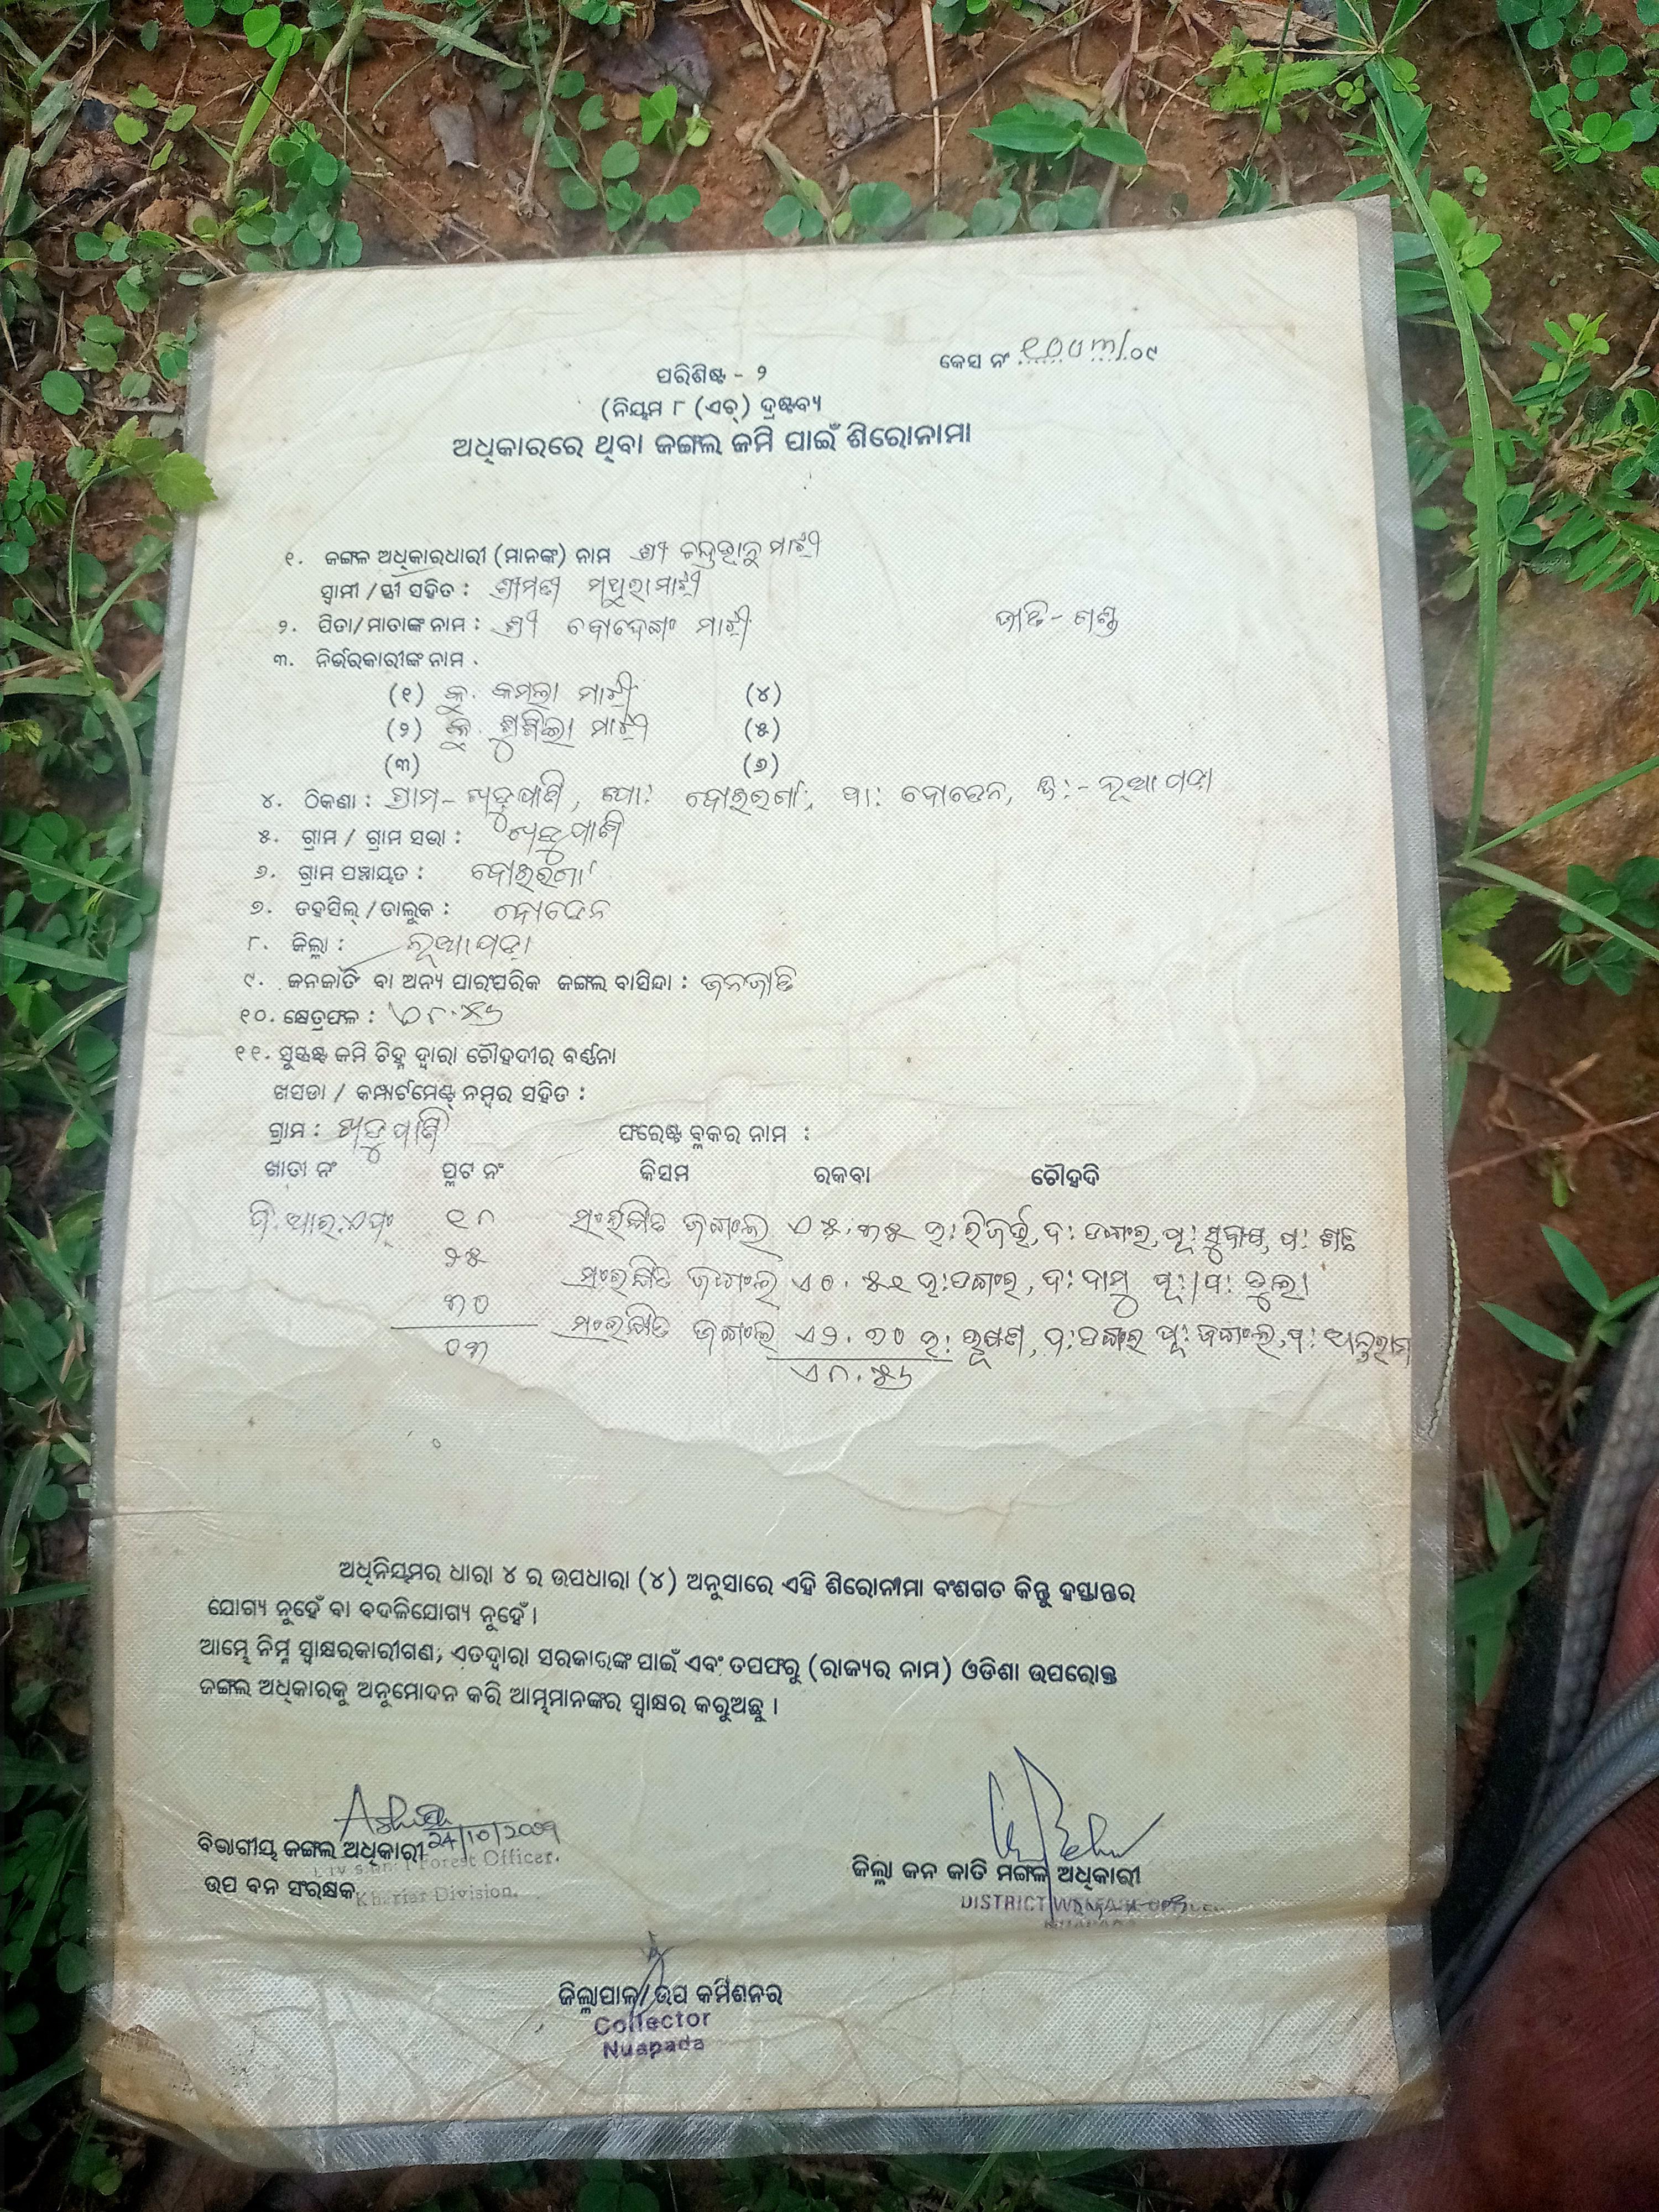 କେସ ନଂ ୧୦୦୩/୦୯
ପରିଶିଷ୍ଟ - ୨
(ନିୟମ ୮ (ଏଚ୍) ଦ୍ରଷ୍ଟବ୍ୟ
ଅଧିକାରରେ ଥିବା ଜଙ୍ଗଲ ଜମି ପାଇଁ ଶିରୋନାମା
୧. ଜଙ୍ଗଳ ଅଧିକାରଧାରୀ (ମାନଙ୍କ) ନାମ ଶ୍ରୀ ଚନ୍ଦ୍ରଭାନୁ ମାଝୀ
ସ୍ୱାମୀ / ସ୍ତ୍ରୀ ସହିତ : ଶ୍ରୀମତୀ ମଥୁରା ମାଝୀ
୨. ପିତା/ମାତାଙ୍କ ନାମ : ଶ୍ରୀ ମାଝୀ ଜାତି - ଗଣ୍ଡ
୩. ନିର୍ଭରକାରୀଙ୍କ ନାମ .
(୧) କୁ. କମଲା ମାଝୀ (୪)
(୨) କୁ. ସୁଶିଲା ମାଝୀ (୫)
(୩) (୬)
୪. ଠିକଣା : ଗ୍ରାମ - ଖଡୁପାଣି, ପୋ: ଦୋଇଗାଁ, ଥା: ବୋଡେନ, ଜି:- ନୂଆପଡା
୫. ଗ୍ରାମ / ଗ୍ରାମ ସଭା : ଖଡୁପାଣି
୬. ଗ୍ରାମ ପଞ୍ଚାୟତ :
୭. ତହସିଲ୍ / ତାଲୁକ : ବୋଡେନ
୮. ଜିଲ୍ଲା : ନୂଆପଡା
୯. ଜନଜାତି ବା ଅନ୍ୟ ପାରଂପରିକ ଜଙ୍ଗଲ ବାସିନ୍ଦା : ଜନଜାତି
୧୦. କ୍ଷେତ୍ରଫଳ : ଏ୮.୫୬
୧୧. ସୁସ୍ପଷ୍ଟ ଜମି ଚିହ୍ନ ଦ୍ୱାରା ଚୌହଦୀର ବର୍ଣ୍ଣନା
ଖସଡା / କମ୍ପାର୍ଟମେଣ୍ଟ୍ ନମ୍ବର ସହିତ :
ଗ୍ରାମ : ଖଡୁପାଣି ଫରେଷ୍ଟ ବ୍ଲକର ନାମ :
ଖାତା ନଂ ପ୍ଲଟ ନଂ କିସମ ରକବା ଚୌହଦି
ଡି.ଆର.ଏଫ୍ ୧୮ ସଂରକ୍ଷିତ ଜଙ୍ଗଲ ଏ୫.୩୫ ଉ: ରିଜର୍ଭ, ଦ: ଡଙ୍ଗର, ପୂ: ସୁବାଷ, ପ:
୨୫ ସଂରକ୍ଷିତ ଜଙ୍ଗଲ ଏ୦.୫୧ ଉ: ଡଙ୍ଗର, ଦ: ଦାମୁ ପୂ:/ପ: ଡୁଲା
୩୦ ସଂରକ୍ଷିତ ଜଙ୍ଗଲ ଏ୨.୭୦ ଉ: ଭୂଷଣ, ଦ: ଡଙ୍ଗର ପୂ: ଜଙ୍ଗଲ, ପ:
୦୩ ଏ୮.୫୬
ଅଧିନିୟମର ଧାରା ୪ ର ଉପଧାରା (୪) ଅନୁସାରେ ଏହି ଶିରୋନାମା ବଂଶଗତ କିନ୍ତୁ ହସ୍ତାନ୍ତର
ଯୋଗ୍ୟ ନୁହେଁ ବା ବଦଳିଯୋଗ୍ୟ ନୁହେଁ।
ଆମ୍ଭେ ନିମ୍ନ ସ୍ୱାକ୍ଷରକାରୀଗଣ, ଏତଦ୍ୱାରା ସରକାରଙ୍କ ପାଇଁ ଏବଂ ତପଫରୁ (ରାଜ୍ୟର ନାମ) ଓଡିଶା ଉପରୋକ୍ତ
ଜଙ୍ଗଲ ଅଧିକାରକୁ ଅନୁମୋଦନ କରି ଆମ୍ଭମାନଙ୍କର ସ୍ୱାକ୍ଷର କରୁଅଛୁ।
24/10/2009
ବିଭାଗୀୟ ଜଙ୍ଗଲ ଅଧିକାରୀ
Forest Officer.
ଉପ ବନ ସଂରକ୍ଷକ
Khariar Division.
ଜିଲ୍ଲା ଜନ ଜାତି ମଙ୍ଗଳ ଅଧିକାରୀ
DISTRICT WELFARE OFFICER
NUAPADA
ଜିଲ୍ଲାପାଳ/ଉପ କମିଶନର
Collector
Nuapada